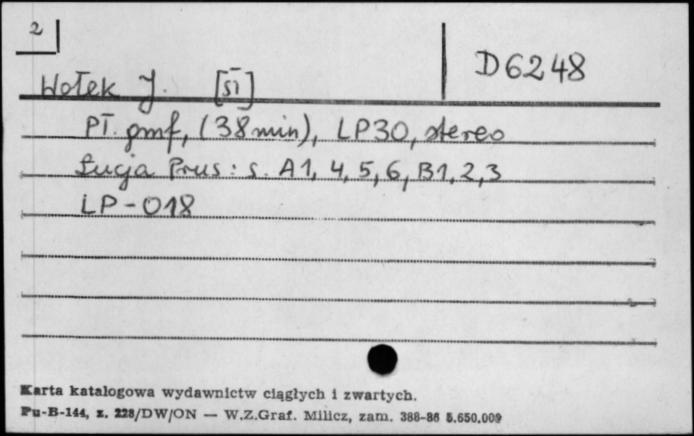 2
D6248
Wołek J. [si]
Pł. gmf, (38 min), LP30, stereo
Łucja Prus: s. A1, 4, 5, 6, B1, 2, 3
LP-018
Karta katalogowa wydawnictw ciągłych i zwartych.
Pu-B-144, z. 228/DW/ON — W.Z.Graf. Milicz, zam. 388-86 5.650.000